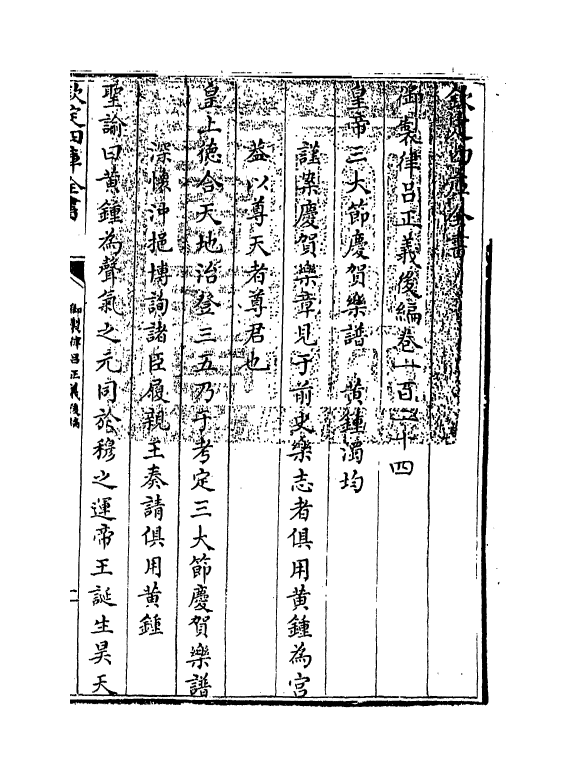 欽定四庫全書
御製律呂正義後編卷一百二十四
皇帝三大節慶賀樂譜　黃鍾濁均
謹案慶賀樂章見于前史樂志者俱用黃鍾為宮
益以尊天者尊君也
皇上徳合天地治登三五乃于考定三大節慶賀樂譜
深懷沖挹博詢諸臣履親王奏請俱用黃鍾
聖諭曰黃鍾為聲氣之元同於穆之運帝王誕生昊天
欽定四庫全書
御製律呂正義後編